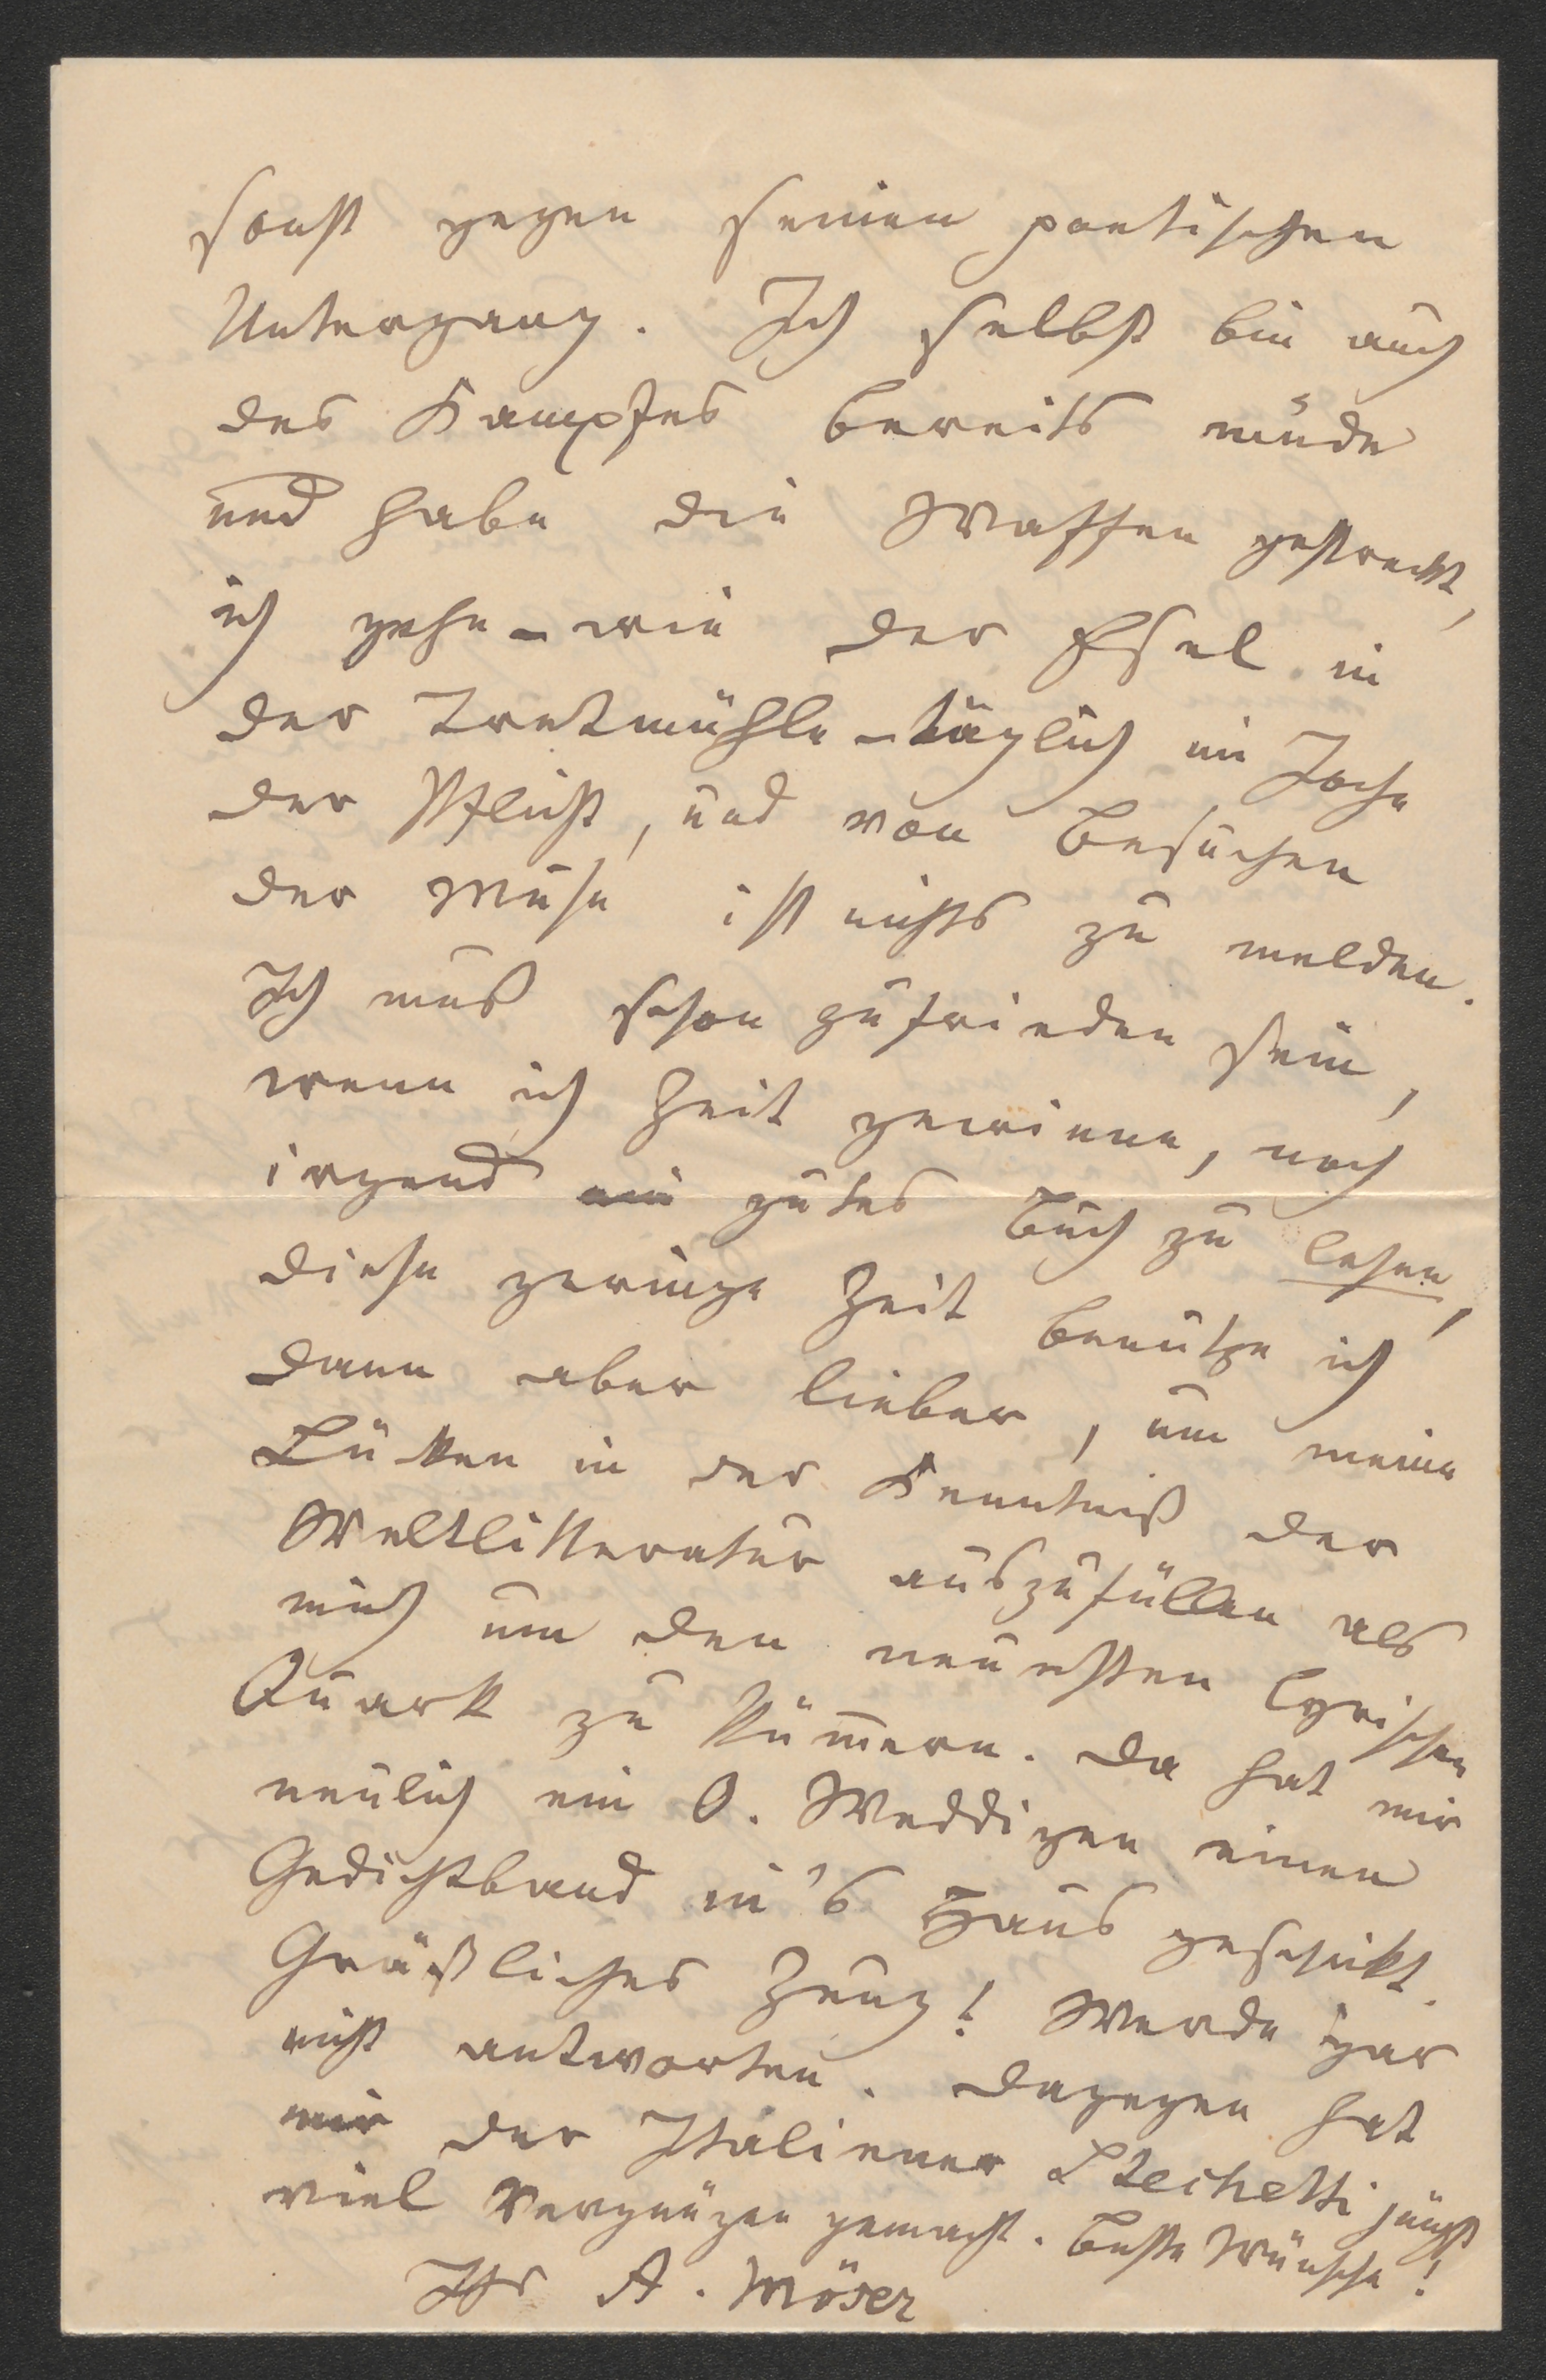 sonst gegen seinen poetischen
Untergang. Ich selbst bin auch
des Kampfes bereits müde
und habe die Waffen gestreckt,
ich gehe – wie der Esel in
der Tretmühle – täglich im Joche
der Pflicht, und von Besuchen
der Muse ist nichts zu melden.
Ich muß schon zufrieden sein,
wenn ich Zeit gewinne, noch
irgend ein gutes Buch zu lesen,
diese geringe Zeit benutze ich
dann aber lieber, um meine
Lücken in der Kenntniß der
Weltlitteratur auszufüllen als
mich um den neuesten lyrischen
Quark zu kümmern. Da hat mir
neulich ein O. Weddigen einen
Gedichtband in's Haus geschickt.
Gräßliches Zeug! Werde gar
nicht antworten. Dagegen hat
mir der Italiener Stechetti jüngst
viel Vergnügen gemacht. Beste Wünsche!
Ihr A. Möser